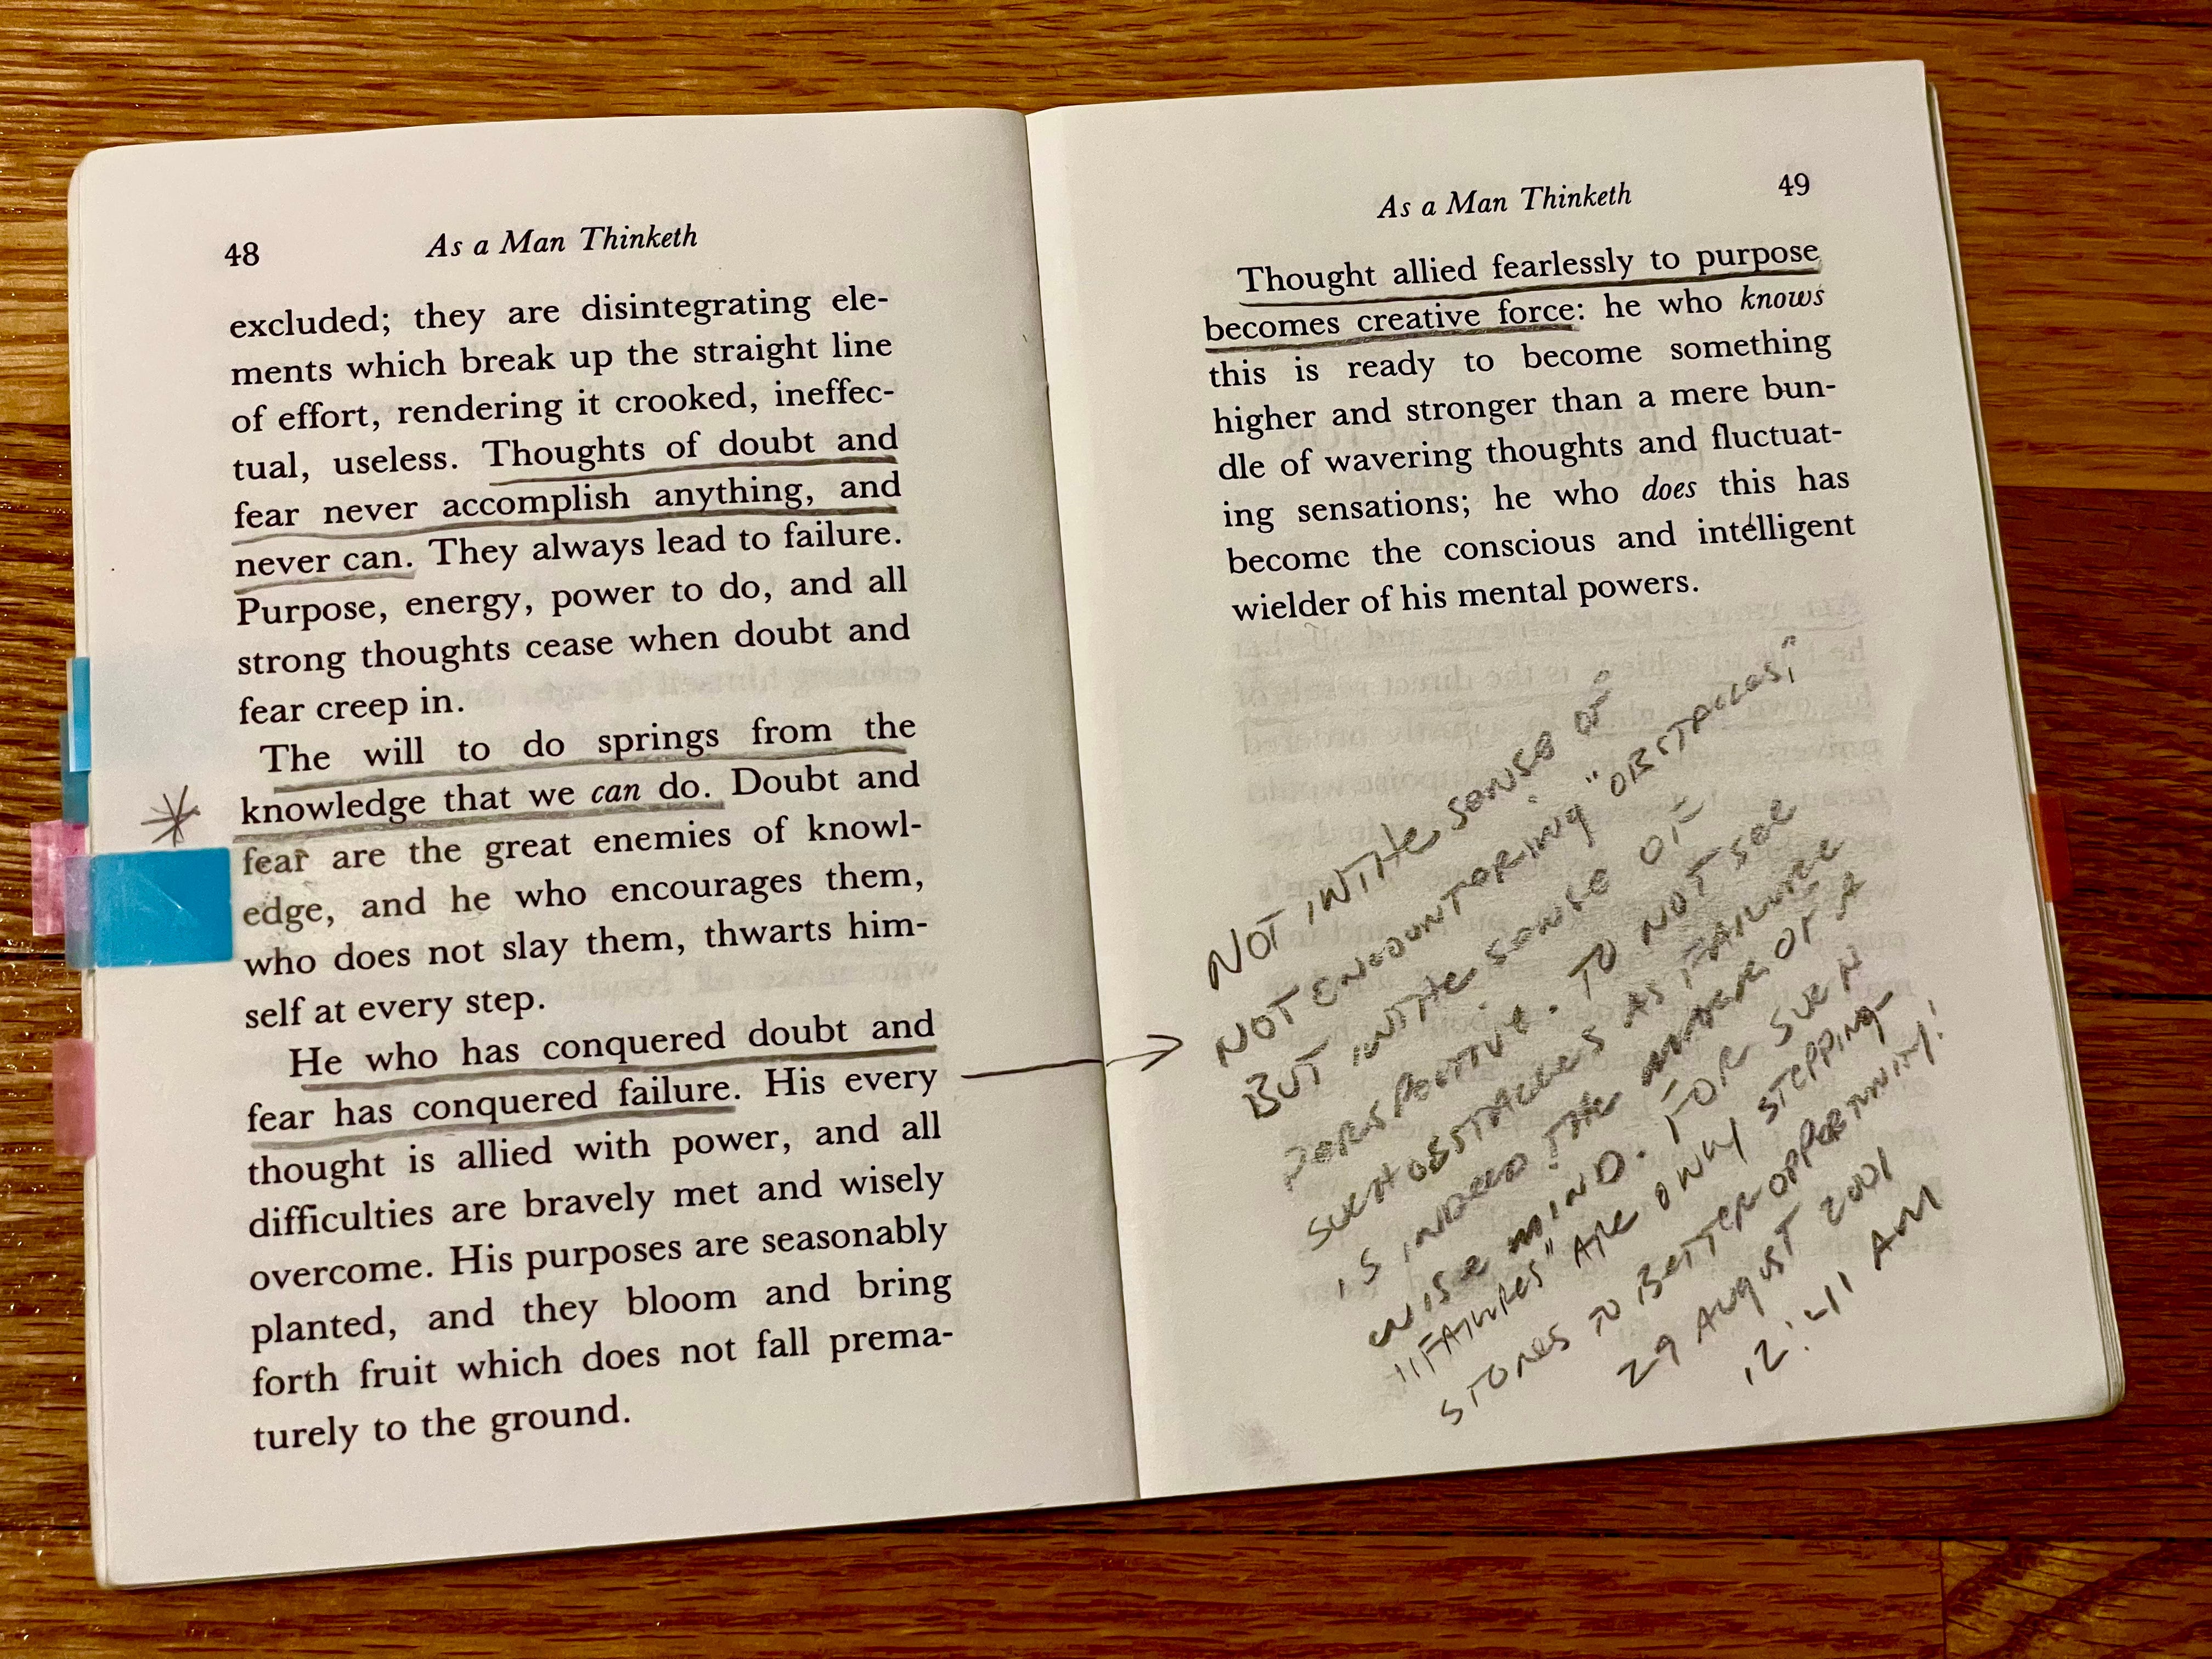 48 As a Man Thinketh
excluded; they are disintegrating ele-
ments which break up the straight line
of effort, rendering it crooked, ineffec-
tual, useless. Thoughts of doubt and
fear never accomplish anything, and
never can. They always lead to failure.
Purpose, energy, power to do, and all
strong thoughts cease when doubt and
fear creep in.
The will to do springs from the
knowledge that we can do. Doubt and
fear are the great enemies of knowl-
edge, and he who encourages them,
who does not slay them, thwarts him-
self at every step.
He who has conquered doubt and
fear has conquered failure. His every
thought is allied with power, and all
difficulties are bravely met and wisely
overcome. His purposes are seasonably
planted, and they bloom and bring
forth fruit which does not fall prema-
turely to the ground.
As a Man Thinketh 49
Thought allied fearlessly to purpose
becomes creative force: he who knows
this is ready to become something
higher and stronger than a mere bun-
dle of wavering thoughts and fluctuat-
ing sensations; he who does this has
become the conscious and intelligent
wielder of his mental powers.
NOT IN THE SENSE OF
NOT ENCOUNTERING "OBSTACLES,"
BUT IN THE SENSE OF
PERSPECTIVE. TO NOT SEE
SUCH OBSTACLES AS FAILURE
IS INDEED THE OF A
WISE MIND. FOR SUCH
"FAILURES" ARE ONLY STEPPING-
STONES TO BETTER OPPORTUNITY!
29 AUGUST 2001
12:41 AM